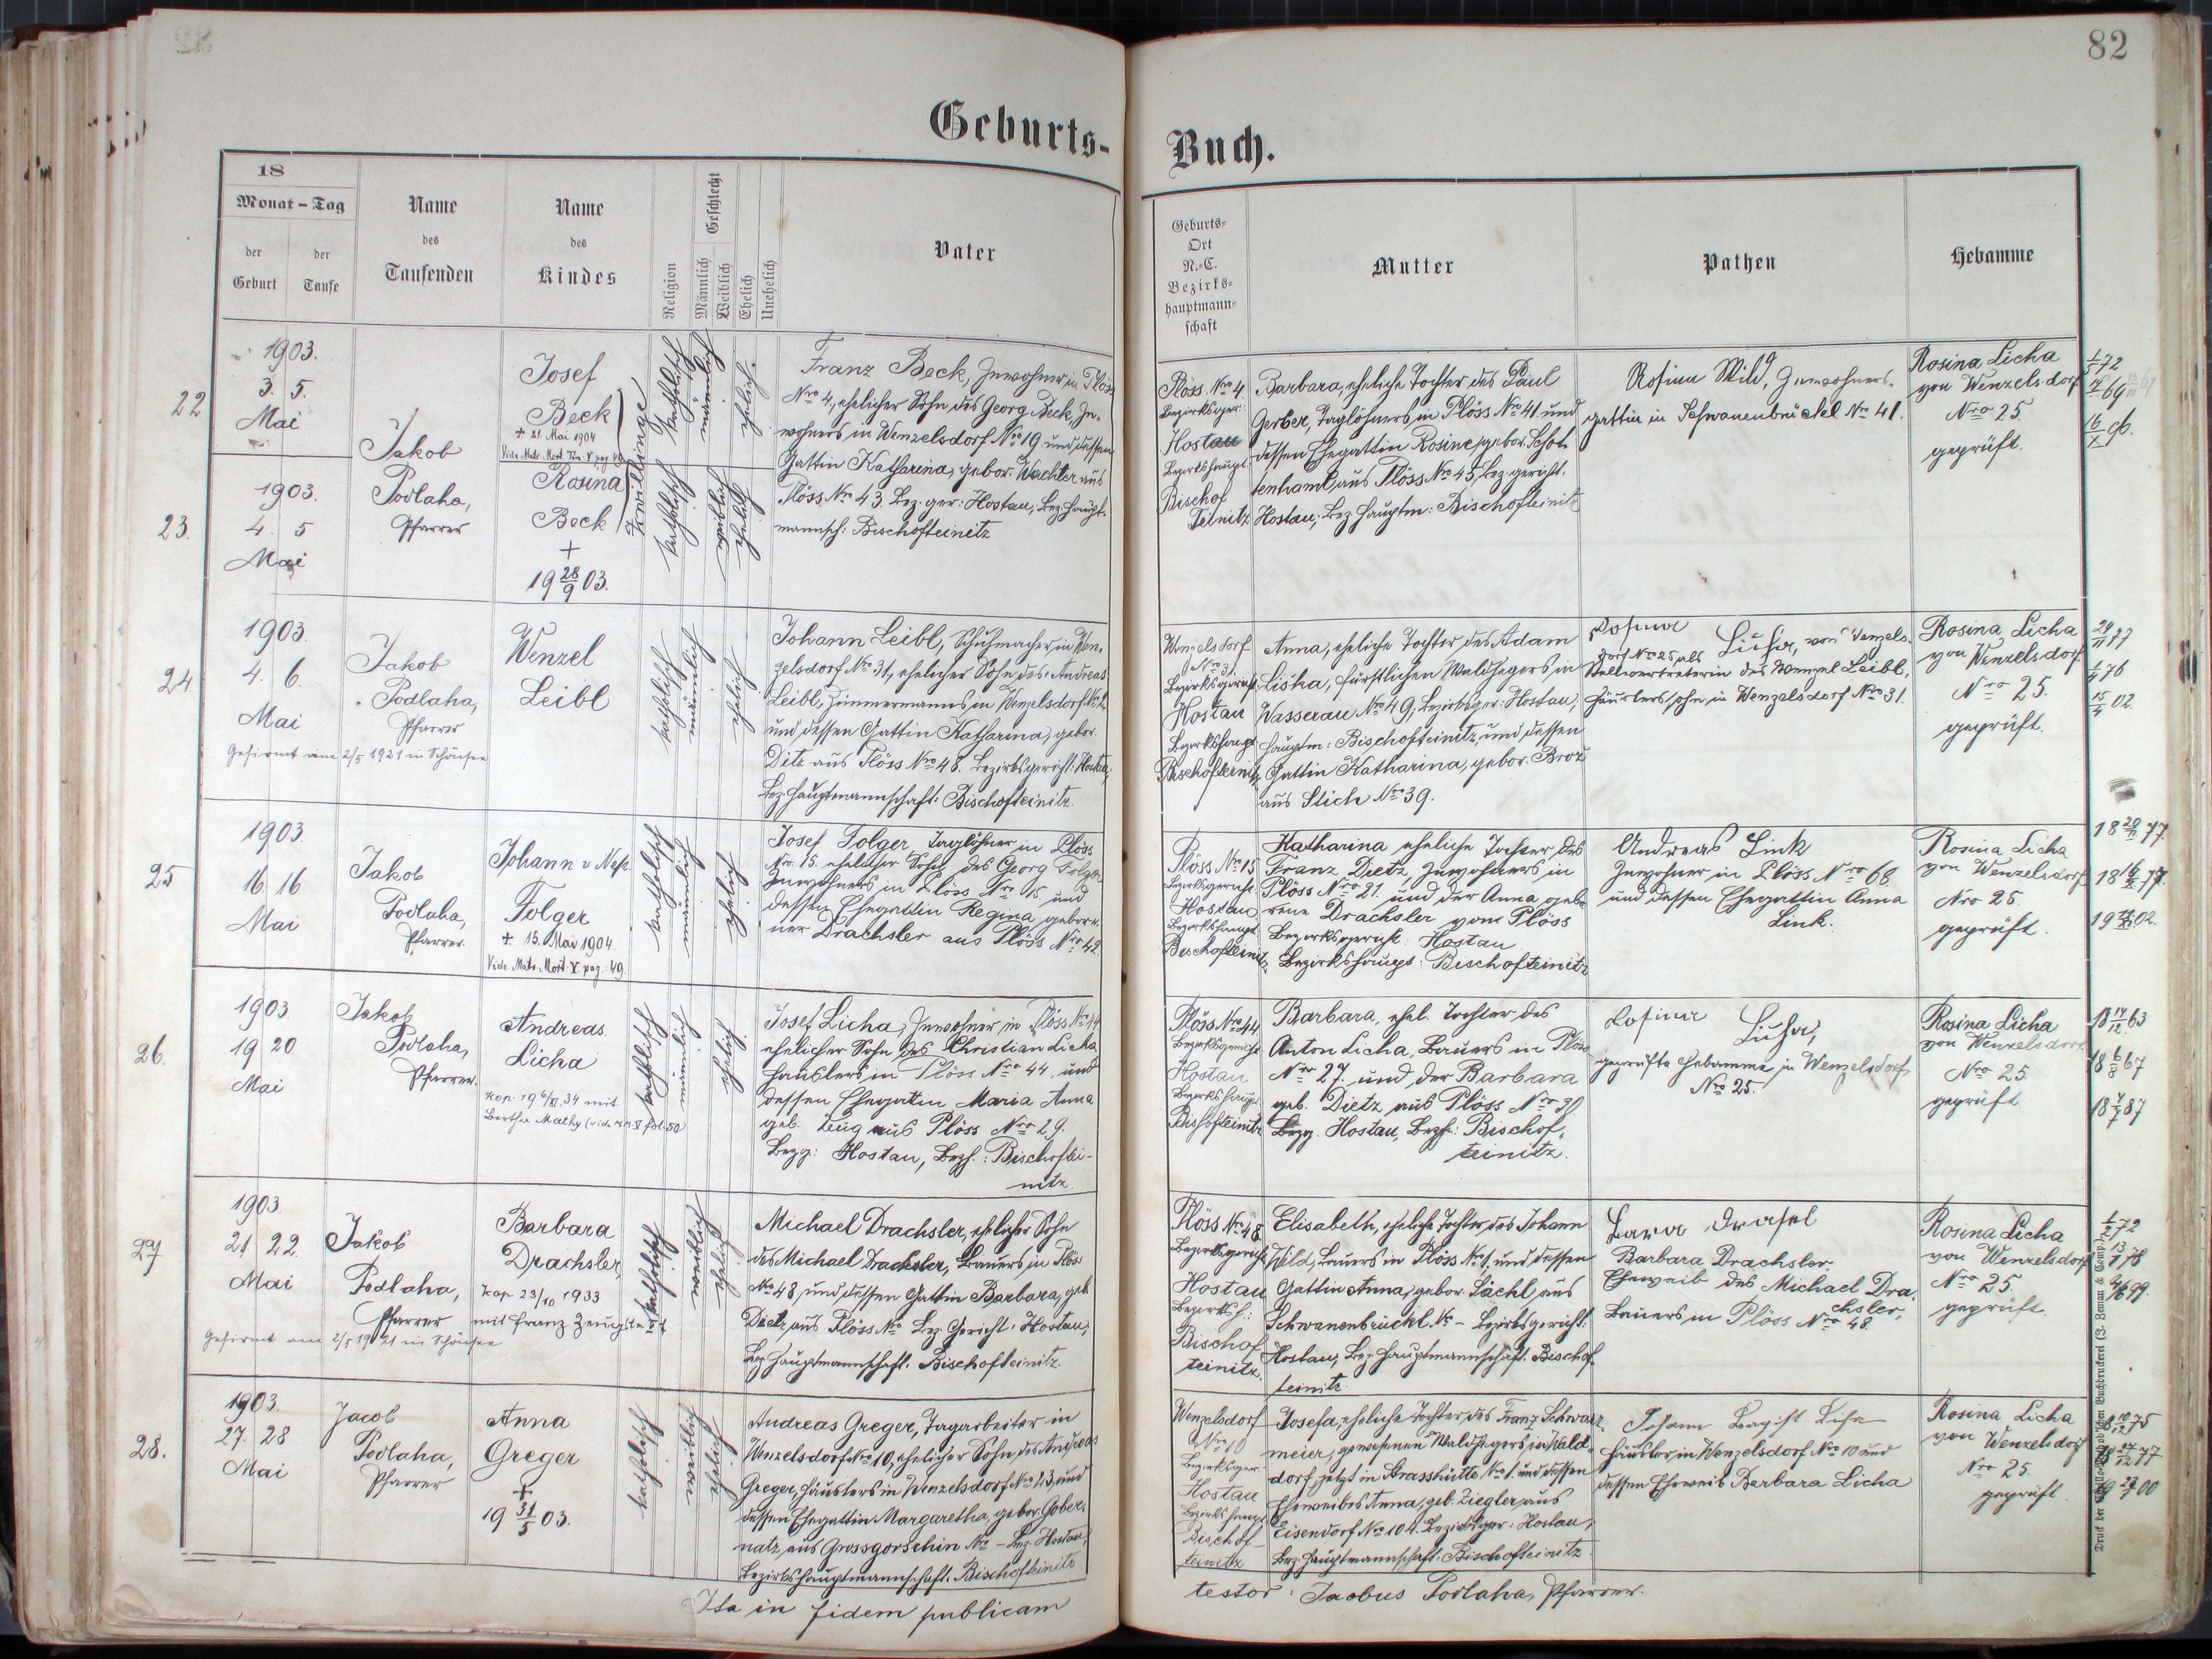 82
Geburts-
Buch.
18
Monat - Tag
der Geburt
der Taufe
Name
des
Taufenden
Name
des
Kindes
Religion
Geschlecht
Männlich
Weiblich
Ehelich
Unehelich
Vater
Geburts-
Ort
N.-C.
Bezirks-
hauptmann-
schaft
Mutter
Pathen
Hebamme
22
1903.
3. 5.
Mai
Jakob
Podlaha,
Pfarrer
Josef
Beck
+ 21. Mai 1904
Vide Matr. Mort. Tom. V. pag. 49
Zwillinge
katholisch
männlich
ehelich
Franz Beck, Inwohner in Plöss
Nro 4, ehelicher Sohn des Georg Beck, In-
wohners in Wenzelsdorf Nro 19 und dessen
Gattin Katharina, gebor. Wachter aus
Plöss Nro 43. Bez: ger: Hostau, Bez: Haupt-
mannsch: Bischofteinitz
Plöss. Nro 4.
Bezirksger:
Hostau
Bezirkshaupt.
Bischof
Teinitz
Barbara, eheliche Tochter des Paul
Gerber, Taglöhners in Plöss Nro 41 und
dessen Ehegattin Rosine, gebor. Schot-
tenhaml, aus Plöss Nro 45, Bez: gericht.
Hostau, Bez Hauptm: Bischofteinitz
Rosina Wild, Inwohners-
gattin in Schwanenbrückel Nro 41.
Rosina Licha
von Wenzelsdorf
Nro 25
geprüft.
23.
1903.
4. 5
Mai
Rosina
Beck
+
19 28/9 03.
katholisch
weiblich
ehelich
24.
1903.
4. 6.
Mai
Jakob
Podlaha,
Pfarrer
Gefirmt am 2/5 1921 in Schönsee
Wenzel
Leibl
katholisch
männlich
ehelich
Johann Leibl, Schuhmacher in Wen-
zelsdorf Nro 31, ehelicher Sohn des Andreas
Leibl, Zimmermanns in Wenzelsdorf
und dessen Gattin Katharina, gebor.
Ditz aus Plöss Nro 48. Bezirksgericht: Hostau,
Bez: Hauptmannschaft: Bischofteinitz.
Wenzelsdorf
Nro 31
Bezirksgericht
Hostau
Bezirkshaupt
Bischofteinitz
Anna, eheliche Tochter des Adam
Lishka, fürstlichen Waldhegers in
Wasserau Nro 49, Bezirksger: Hostau,
Hauptm: Bischofteinitz, und dessen
Gattin Katharina, gebor. Brož
aus Stich Nro 39.
Rosina Licha, von Wenzels-
dorf Nro 25 als
Stellvertreterin des Wenzel Leibl,
Häuslerssohn in Wenzelsdorf Nro 31.
Rosina Licha
von Wenzelsdorf
Nro 25.
geprüft.
25
1903.
16. 16
Mai
Jakob
Podlaha,
Pfarrer.
Johann v Nep.
Folger
+ 15. Mai 1904.
Vide Matr. Mort. V. pag. 49
katholisch
männlich
ehelich
Josef Folger, Taglöhner in Plöss
Nro 15. ehelicher Sohn des Georg Folger
Inwohners in Plöss Nro 15 und
dessen Ehegattin Regina gebore-
ner Drachsler aus Plöss Nro 42.
Plöss Nro 15
Bezirksgericht
Hostau
Bezirkshaupt
Bischofteinitz
Katharina eheliche Tochter des
Franz Dietz, Inwohners in
Plöss Nro 21 und der Anna gebo-
rene Drachsler vom Plöss
Bezirksgericht: Hostau
Bezirkshaupt: Bischofteinitz
Andreas Link
Inwohner in Plöss Nro 68
und dessen Ehegattin Anna
Link.
Rosina Licha
von Wenzelsdorf
Nro 25.
geprüft.
26.
1903.
19 20.
Mai
Jakob
Podlaha,
Pfarrer.
Andreas
Licha
kop. 19 6/XI. 34 mit
Bertha Mathy (vide MM V fol. 50)
katholisch
männlich
ehelich.
Josef Licha, Inwohner in Plöss Nro 44
ehelicher Sohn des Christian Licha
Häuslers in Plöss Nro 44. und
dessen Ehegattin Maria Anna
geb. Zeug aus Plöss Nro 29.
Bezg: Hostau, Bezh.: Bischoftei-
nitz.
Plöss Nro 44
Bezirksgericht
Hostau
Bezirkshaupt
Bischofteinitz
Barbara, ehel. Tochter des
Anton Licha, Bauers in Plöss
Nro 27. und der Barbara
geb. Dietz aus Plöss Nro 30
Bezg. Hostau, Bezh: Bischof-
teinitz.
Rosina Licha,
geprüfte Hebamme in Wenzelsdorf
Nro 25.
Rosina Licha
von Wenzelsdorf
Nro 25
geprüft
27
1903
21 22.
Mai
Jakob
Podlaha,
Pfarrer
Gefirmt am 2/5 1921 in Schönsee
Barbara
Drachsler,
kop 23/10 1933
mit Franz
katholisch
weiblich
ehelich
Michael Drachsler, ehelicher Sohn
des Michael Drachsler, Bauers in Plöss
Nro 48, und dessen Gattin Barbara, geb
Dietz, aus Plöss Nro Bez Gericht: Hostau,
Bez: Hauptmannschaft: Bischofteinitz.
Plöss Nro 48
Bezirksgericht
Hostau
Bezirksh:
Bischof
teinitz.
Elisabeth, eheliche Tochter des Johann
Wild, Bauers in Plöss Nro 1, und dessen
Gattin Anna, gebor. Lächl aus
Schwanenbrückl. Nro - Bezirksgericht:
Hostau, Bez: Hauptmannschaft. Bischof
teinitz.
Barbara Drachsler,
Eheweib des Michael Dra-
chsler,
Bauers in Plöss Nro 48.
Rosina Licha
von Wenzelsdorf
Nro 25.
geprüft.
28.
1903.
27. 28
Mai
Jacob
Podlaha,
Pfarrer
Anna
Greger
+
19 31/5 03.
katholisch
weiblich
ehelich
Andreas Greger, Tagarbeiter in
Wenzelsdorf Nro 10, ehelicher Sohn des Andreas
Greger, Häuslers in Wenzelsdorf Nro 23, und
dessen Ehegattin Margaretha, gebor. Gober-
natz, aus Grossgorschin Nro - Bez. Hostau,
Bezirkshauptmannschaft. Bischofteinitz
Wenzelsdorf
Nro 10
Bezirksger
Hostau
Bezirkshaupt
Bischof-
teinitz
Josefa, eheliche Tochter des Franz Schwarz-
meier, gewesenen Waldhegers in Wald-
dorf, jetzt in Strasshütte Nro 1. und dessen
Eheweibes Anna, geb. Ziegler aus
Eisendorf Nro 104. Bezirksger: Hostau,
Bez: Hauptmannschaft. Bischofteinitz
Johann Baptist Licha
Häusler in Wenzelsdorf Nro 10 und
dessen Eheweib Barbara Licha
Rosina Licha
von Wenzelsdorf
Nro 25.
geprüft.
Ita in fidem publicam
testor: Jacobus Podlaha, Pfarrer.